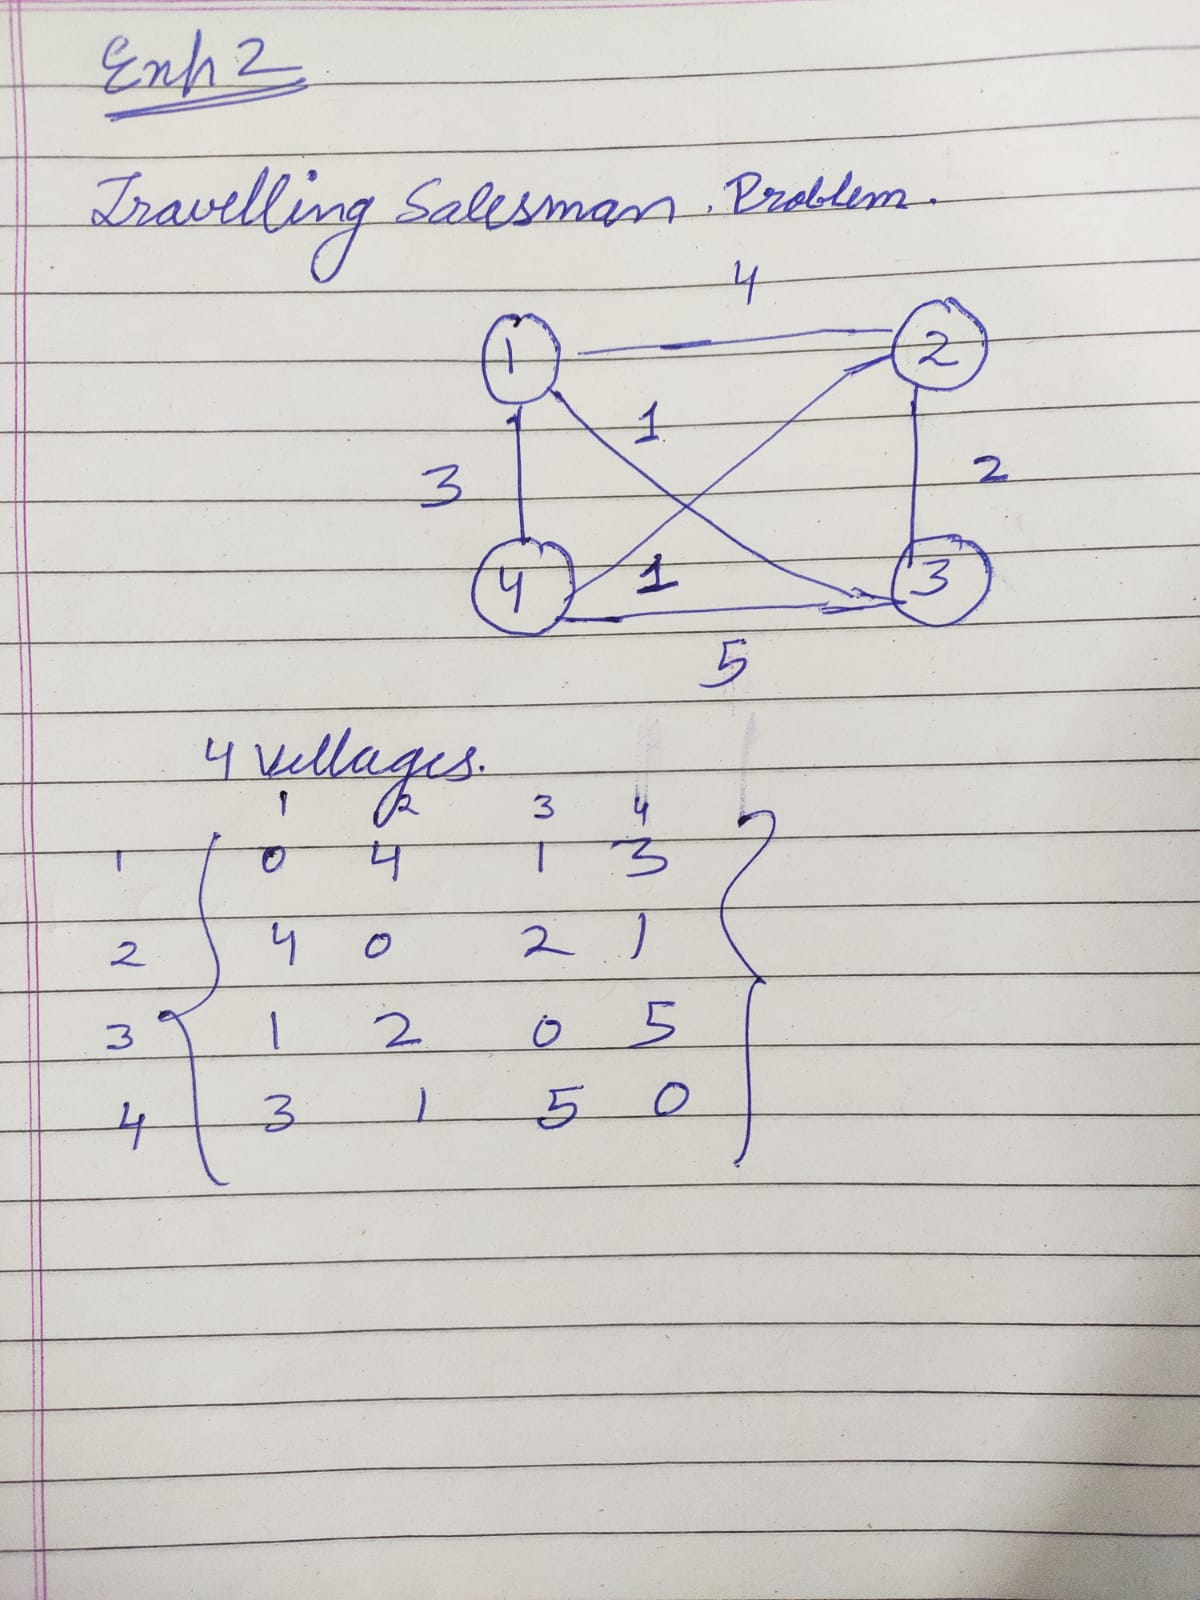 Exp 2
Travelling Salesman Problem.
4
1 2
1
3 2
4 1 3
5
4 Villages.
1 2 3 4
1 0 4 1 3
2 4 0 2 1
3 1 2 0 5
4 3 1 5 0